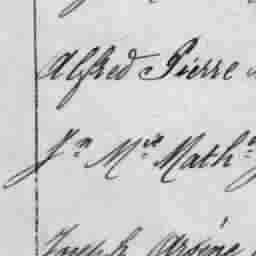 Alfred Pierre
Jn Mie Mathn
Joseph Arsène